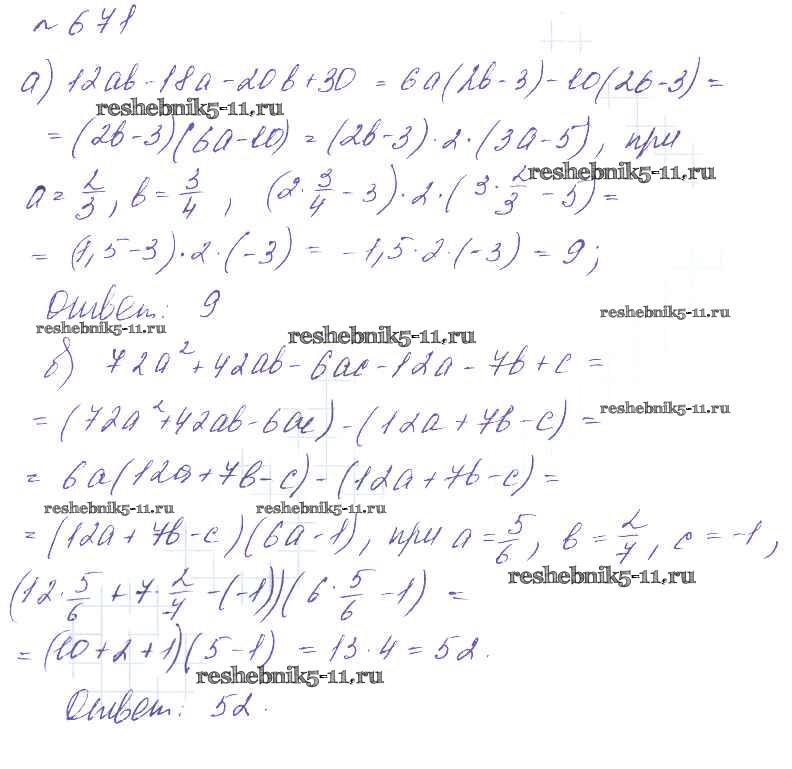 № 671
а) 12ab - 18a - 20b + 30 = 6a(2b - 3) - 10(2b - 3) =
reshebnik5-11.ru
= (2b - 3)(6a - 10) = (2b - 3) · 2 · (3a - 5), при
reshebnik5-11.ru
a = 2/3, b = 3/4, (2 · 3/4 - 3) · 2 · (3 · 2/3 - 5) =
= (1,5 - 3) · 2 · (-3) = -1,5 · 2 · (-3) = 9;
Ответ: 9
reshebnik5-11.ru
reshebnik5-11.ru
reshebnik5-11.ru
б) 72a² + 42ab - 6ac - 12a - 7b + c =
= (72a² + 42ab - 6ac) - (12a + 7b - c) =
reshebnik5-11.ru
= 6a(12a + 7b - c) - (12a + 7b - c) =
reshebnik5-11.ru
reshebnik5-11.ru
= (12a + 7b - c)(6a - 1), при a = 5/6, b = 2/7, c = -1,
reshebnik5-11.ru
(12 · 5/6 + 7 · 2/7 - (-1))(6 · 5/6 - 1) =
= (10 + 2 + 1)(5 - 1) = 13 · 4 = 52.
reshebnik5-11.ru
Ответ: 52.